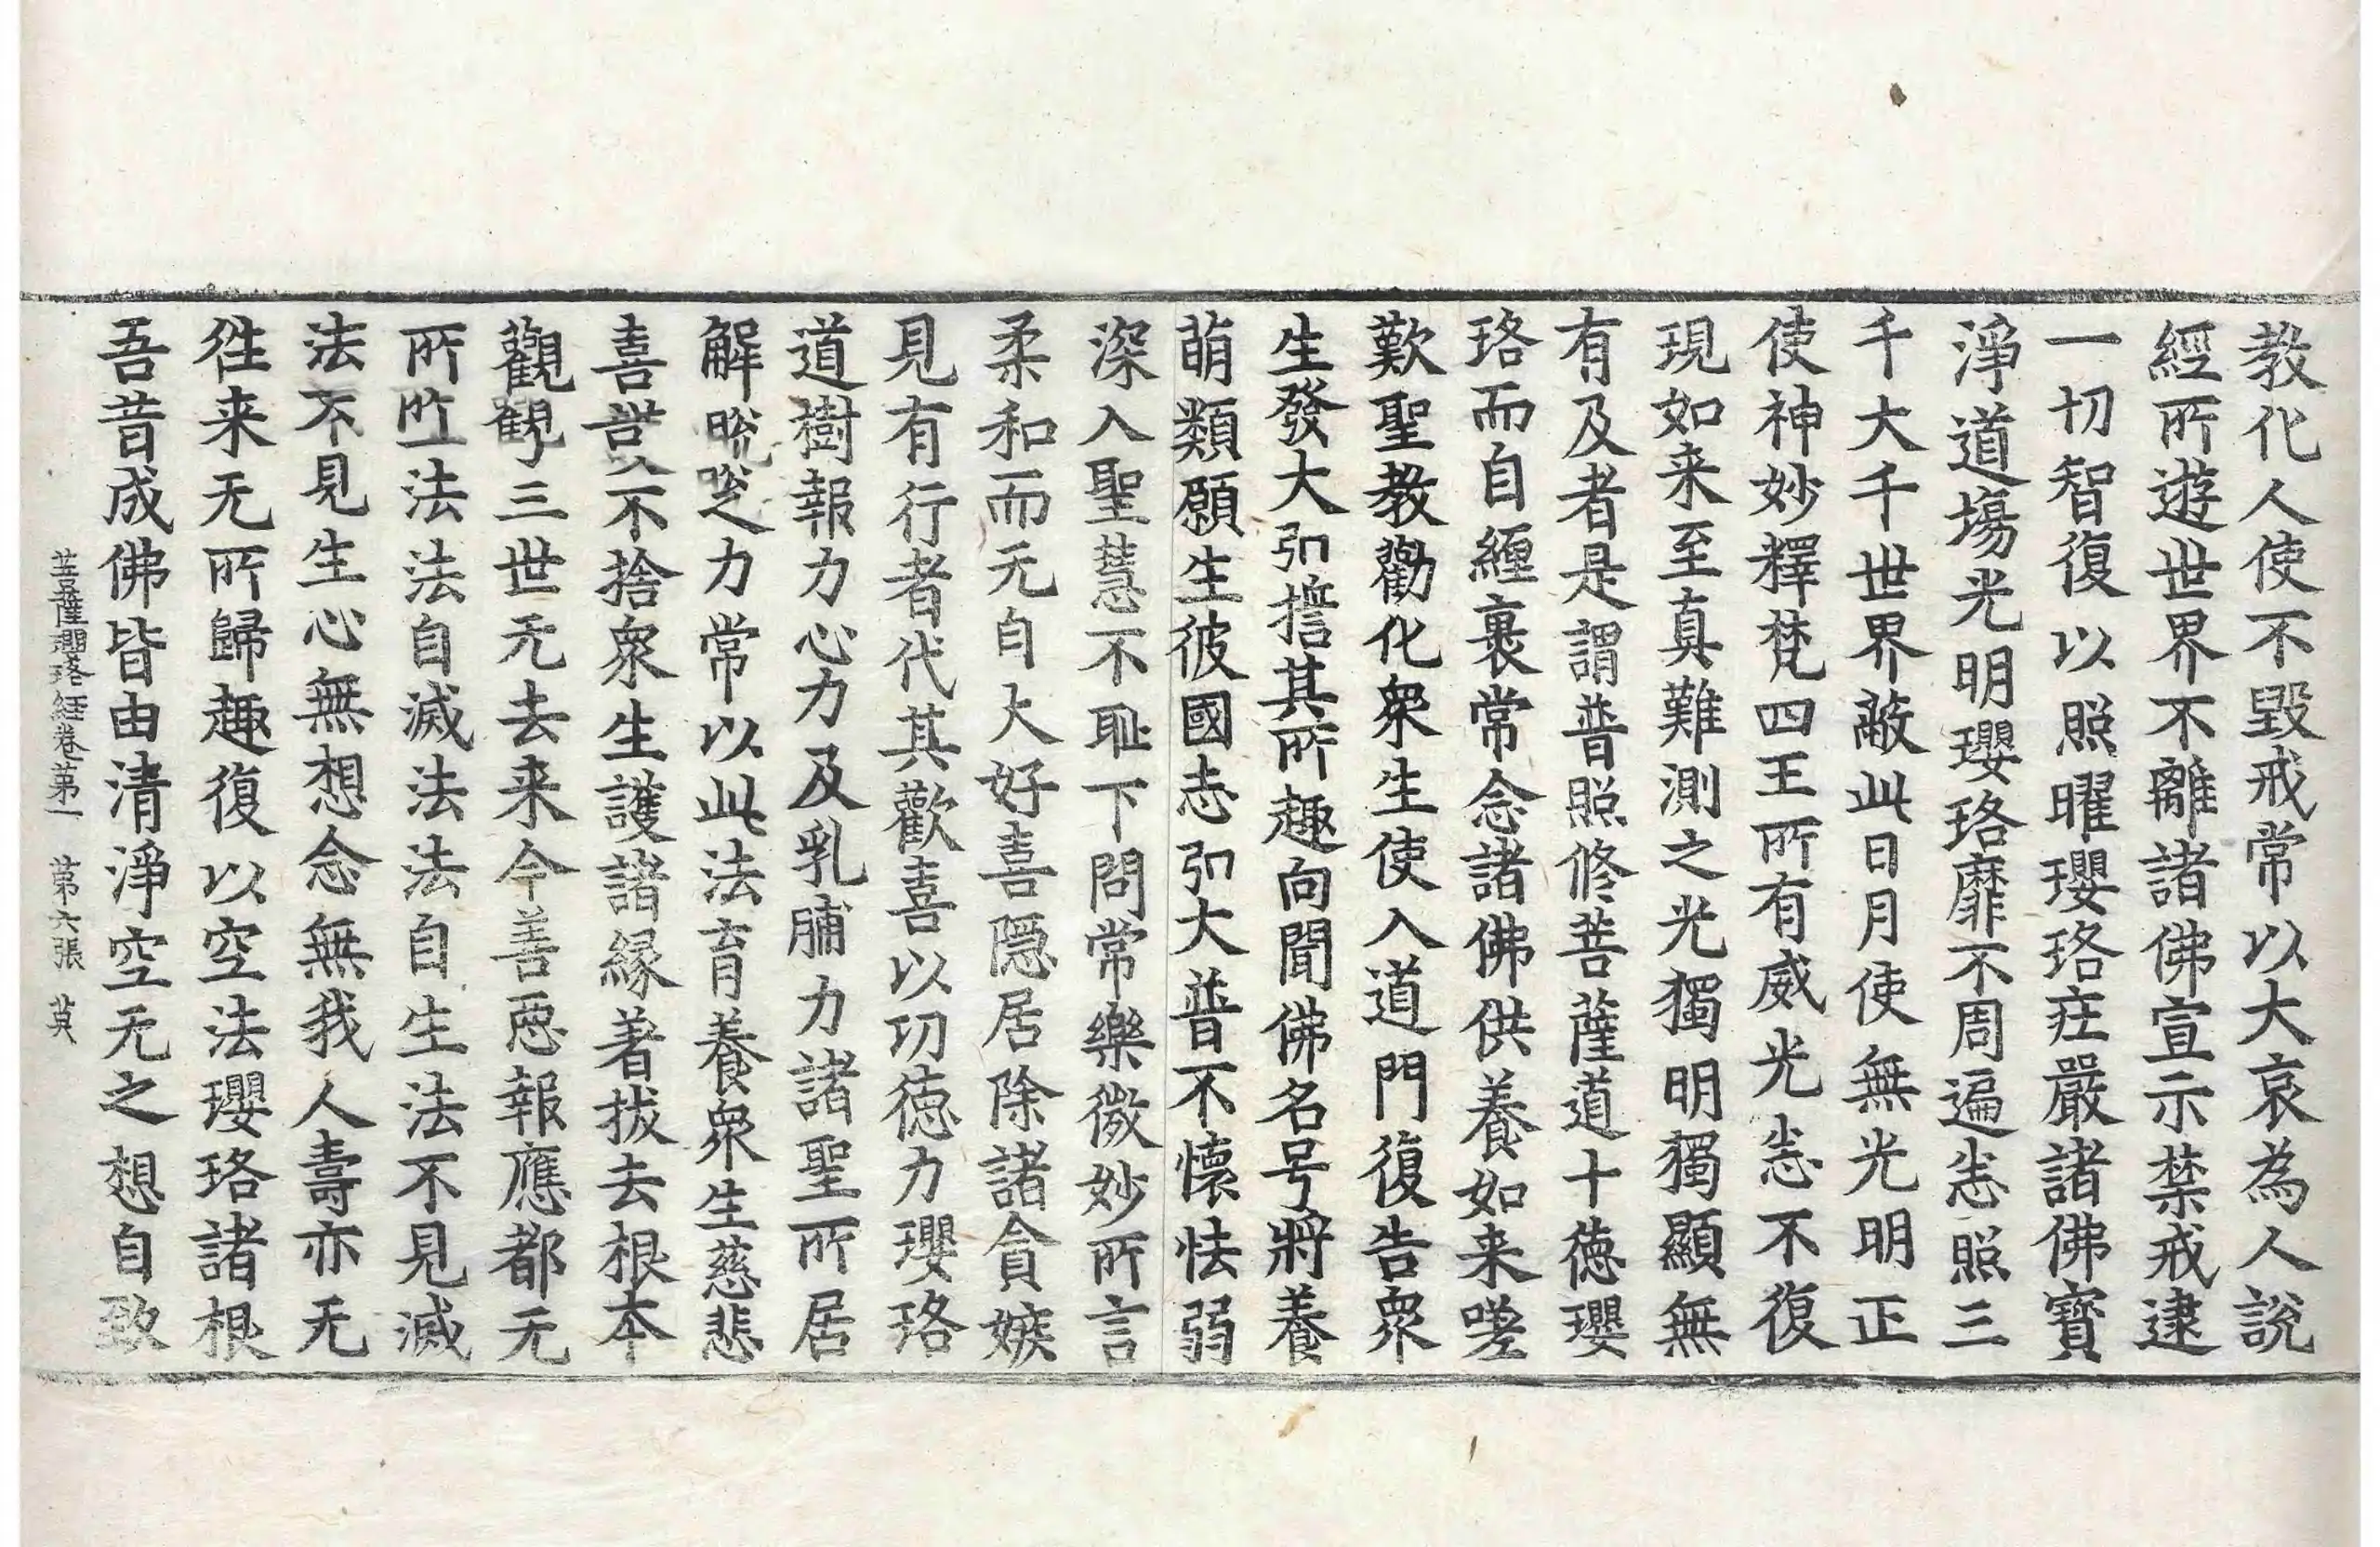 教化人使不毀戒常以大哀為人說
經所遊世界不離諸佛宣示禁戒逮
一切智復以照曜瓔珞莊嚴諸佛寶
淨道場光明瓔珞靡不周遍悉照三
千大千世界蔽此日月使無光明正
使神妙釋梵四王所有威光悉不復
現如来至真難測之光獨明獨顯無
有及者是謂普照修菩薩道十德瓔
珞而自纏裹常念諸佛供養如来嗟
歎聖教勸化衆生使入道門復告衆
生發大弘擔其所趣向聞佛名号將養
萌類願生彼國志弘大普不懷怯弱
深入聖慧不耻下問常樂微妙所言
柔和而无自大好喜隠居除諸貪嫉
見有行者代其歡喜以功德力瓔珞
道樹報力心力及乳脯力諸聖所居
解力常以此法育養衆生慈悲
喜不捨衆生護諸縁著拔去根本
觀三世无去来今善惡報應都无
所法法自滅法法自生法不見滅
法不見生心無想念無我人壽亦无
徃来无所歸趣復以空法瓔珞諸根
吾昔成佛皆由清淨空无之想自致
菩薩瓔珞經卷第一 第六張 莫